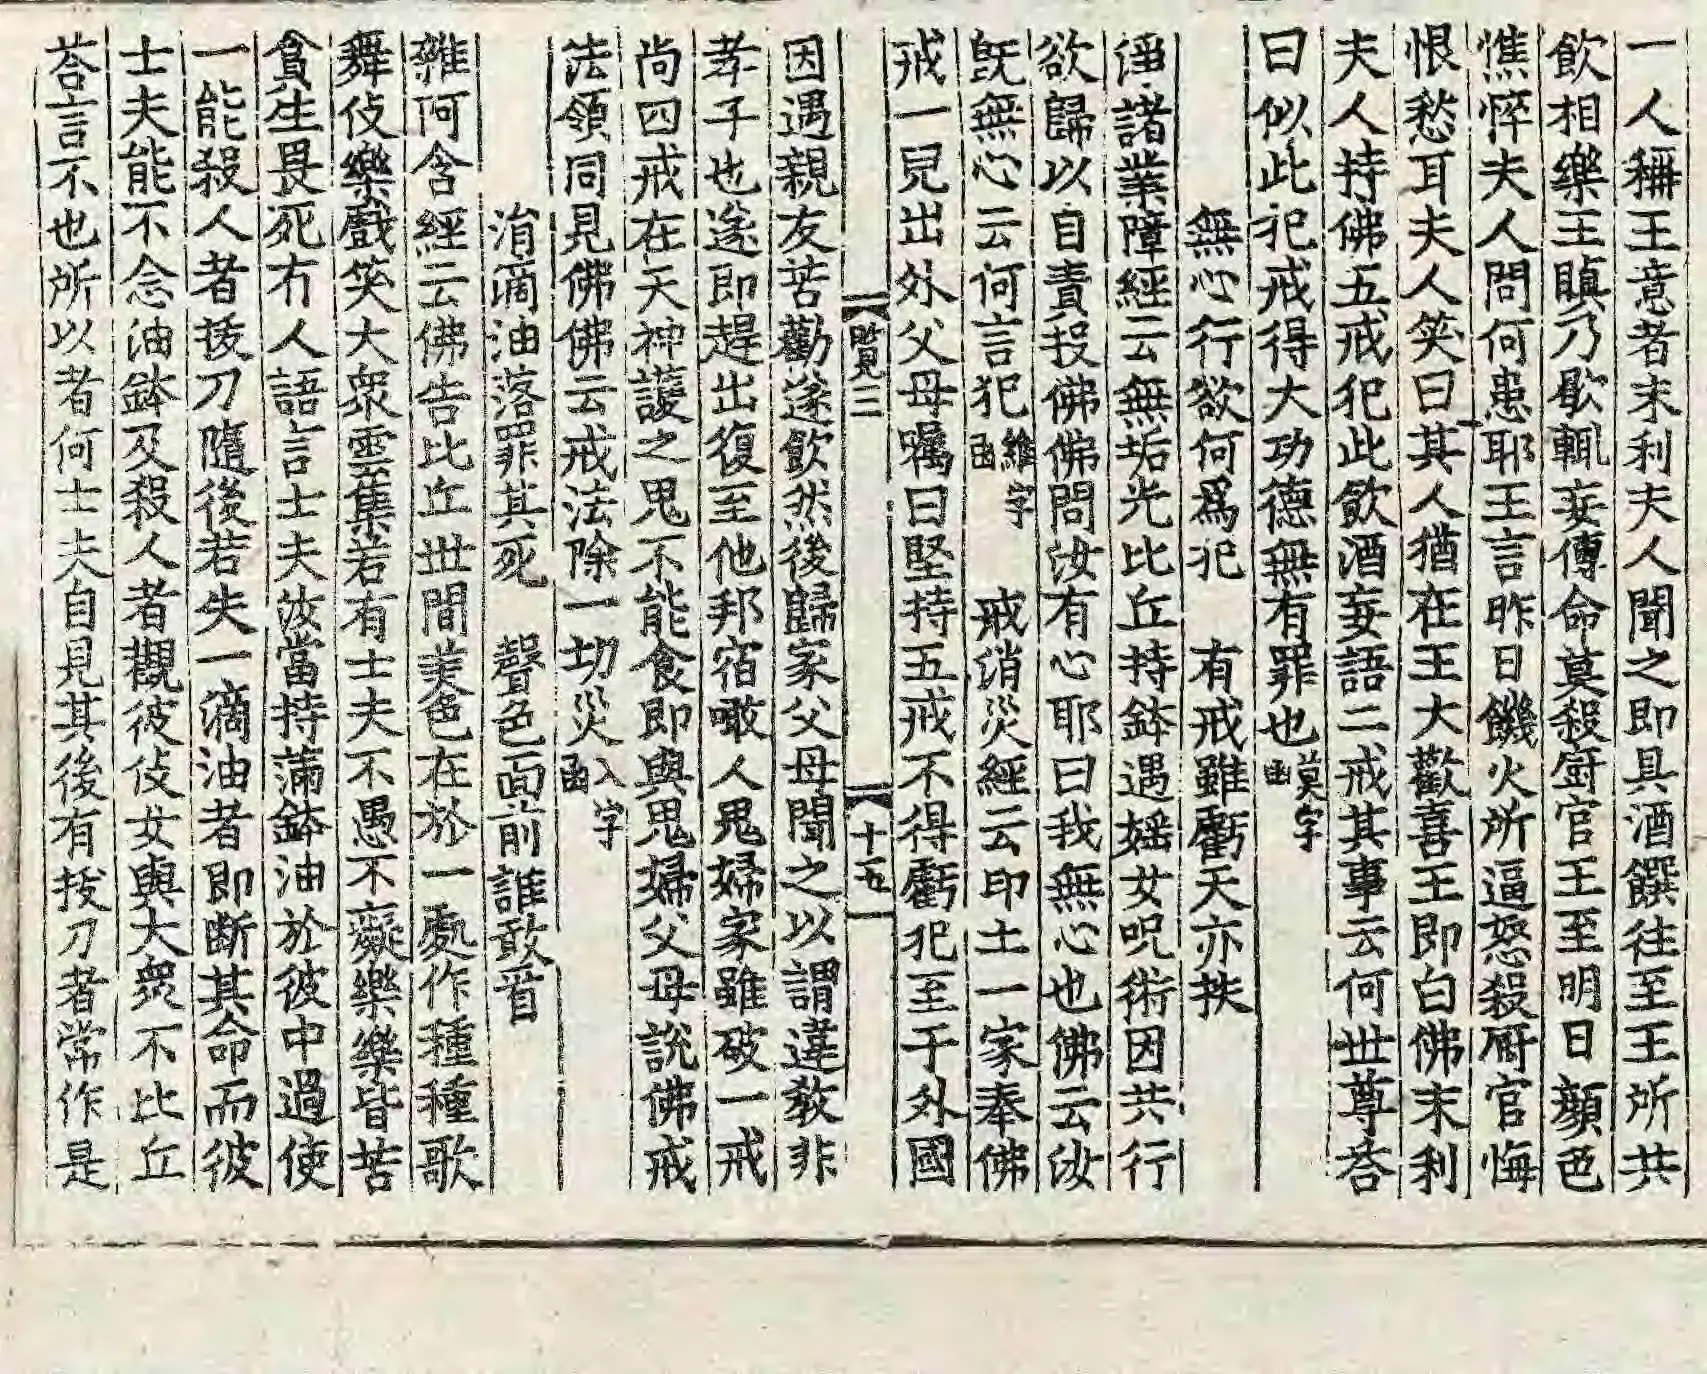 一人稱王意者末利夫人聞之即具酒饌往至王所共
飲相樂王瞋乃歇輒妄傳命莫殺廚官王至明日顔色
憔悴夫人問何患耶王言昨日饑火所逼怒殺厨官悔
恨愁耳夫人笑曰其人猶在王大歡喜王即白佛末利
夫人持佛五戒犯此飲酒妄語二戒其事云何世尊荅
曰似此犯戒得大功德無有罪也莫字函
無心行欲何爲犯 有戒雖虧天亦扶
淨諸業障經云無垢光比丘持鉢遇婬女呪術因共行
欲歸以自責投佛佛問汝有心耶曰我無心也佛云汝
旣無心云何言犯維字函 戒消災經云印土一家奉佛
戒一兒出外父母囑曰堅持五戒不得虧犯至于外國
覽三 十五
因遇親友苦勸遂飲然後歸家父母聞之以謂違教非
孝子也遂即趕出復至他邦宿噉人鬼婦家雖破一戒
尚四戒在天神護之鬼不能食即與鬼婦父母說佛戒
法領同見佛佛云戒法除一切災入字函
涓滴油落罪其死 聲色面前誰敢首
雜阿含經云佛告比丘世間美色在於一處作種種歌
舞伎樂戲笑大衆雲集若有士夫不愚不癡樂樂皆苦
貪生畏死冇人語言士夫汝當持滿鉢油於彼中過使
一能殺人者拔刀隨後若失一滴油者即斷其命而彼
士夫能不念油鉢及殺人者觀彼伎女與大衆不比丘
荅言不也所以者何士夫自見其後有拔刀者常作是